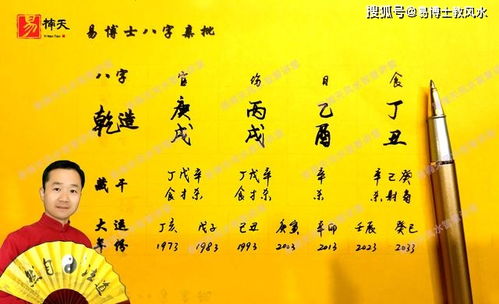 搜狐号@易博士教风水
易 神天
易博士八字真批
八字 官 伤 日 食
乾造 庚戌 丙戌 乙酉 丁丑
藏干 丁戊辛 丁戊辛 辛 辛己癸
食才杀 食才杀 杀 杀财枭
大运 丁亥 戊子 己丑 庚寅 辛卯 壬辰 癸巳
年份 1973 1983 1993 2003 2013 2023 2033
道法自然